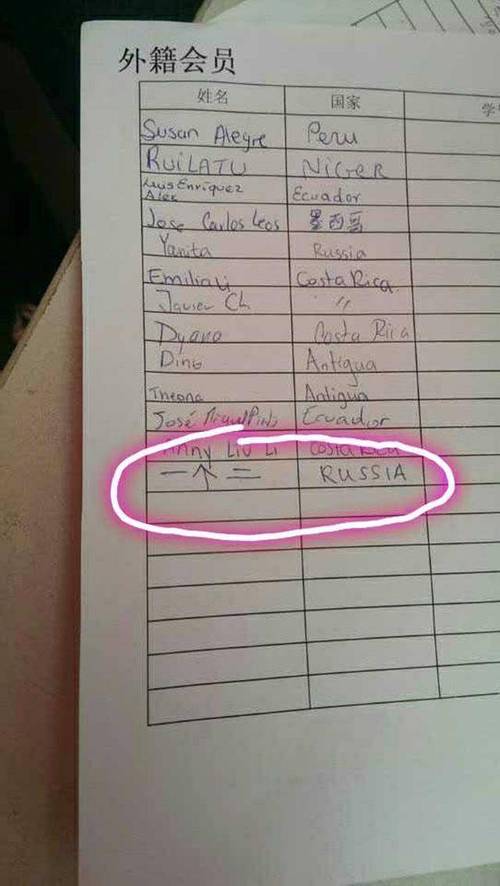 外籍会员
姓名 国家 学
Susan Alegre Peru
RUiLATU NiGeR
Luis Enriquez Ecuador
Alex
Jose Carlos Leos 墨西哥
Yanita Russia
Emilia Li Costa Rica.
Javier Ch 〃
Dyana Costa Rica
Dino Antigua
Theona Antigua
José Miguel Ecuador
Anny LIU Li Costa Rica
一个二 RUSSIA